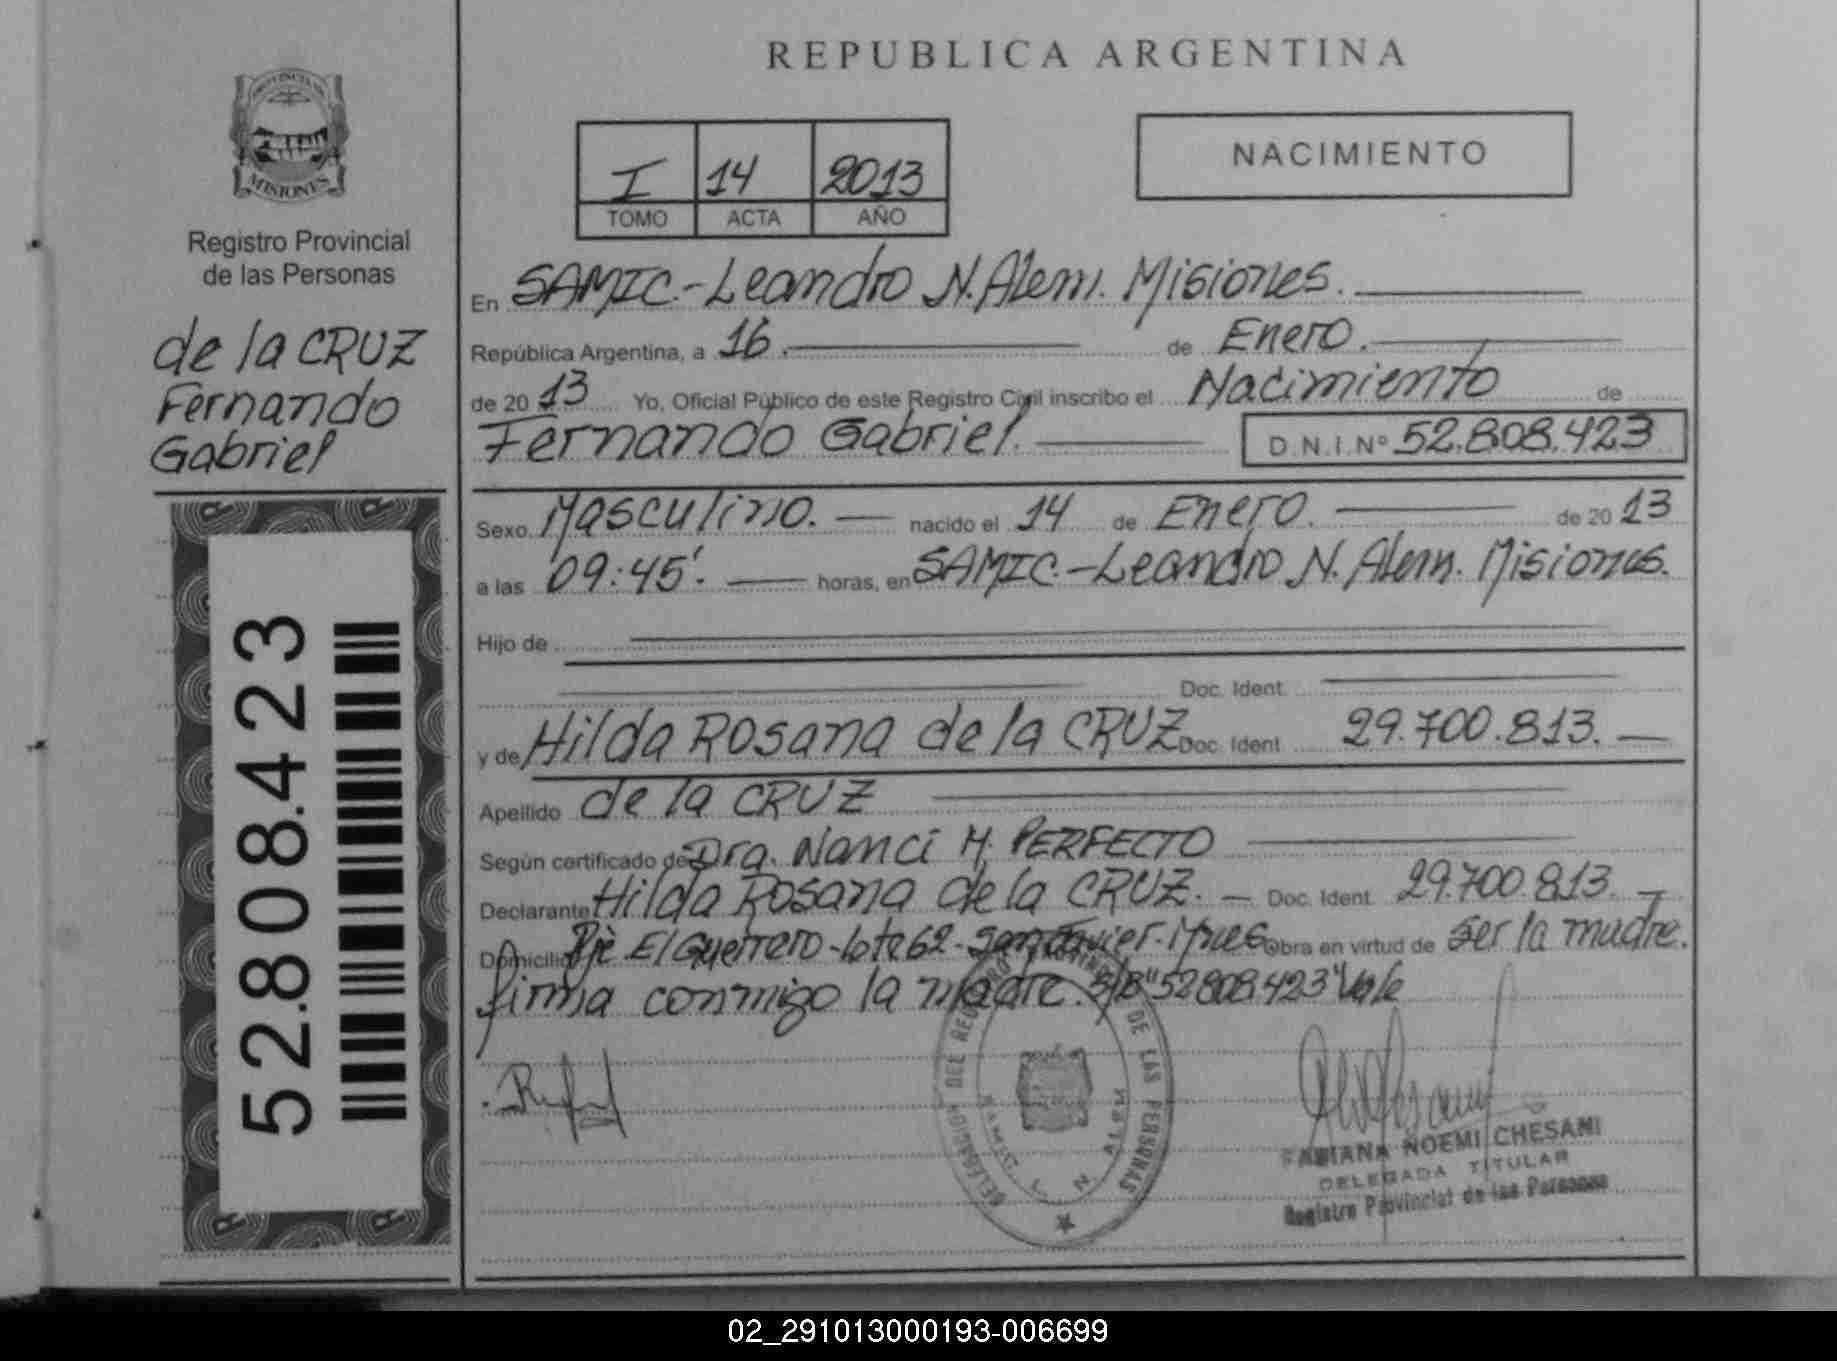 REPUBLICA ARGENTINA
PROVINCIA DE
MISIONES
Registro Provincial
de las Personas
de la CRUZ
Fernando
Gabriel
52.808.423
I 14 2013
TOMO ACTA AÑO
NACIMIENTO
En SAMIC.-Leandro N. Alem. Misiones.
República Argentina, a 16. de Enero.
de 20 13 Yo, Oficial Público de este Registro Civil inscribo el Nacimiento de
Fernando Gabriel. D.N.I.Nº 52.808.423
Sexo Masculino. nacido el 14 de Enero. de 20 13
a las 09:45'. horas, en SAMIC.-Leandro N. Alem. Misiones.
Hijo de
Doc. Ident.
y de Hilda Rosana de la CRUZ Doc. Ident. 29.700.813.
Apellido de la CRUZ
Según certificado de Dra. Nanci M. PERFECTO
Declarante Hilda Rosana de la CRUZ. Doc. Ident. 29.700.813.
Domicilio Pje El Guerrero-lote 62-San Javier. Mnes Obra en virtud de ser la madre.
firma conmigo la madre. S/B "52808423" Vale
DELEGACION DEL REGISTRO PROVINCIAL DE LAS PERSONAS
SAMIC L N ALEM
FABIANA NOEMI CHESANI
DELEGADA TITULAR
Registro Provincial de las Personas
02_291013000193-006699